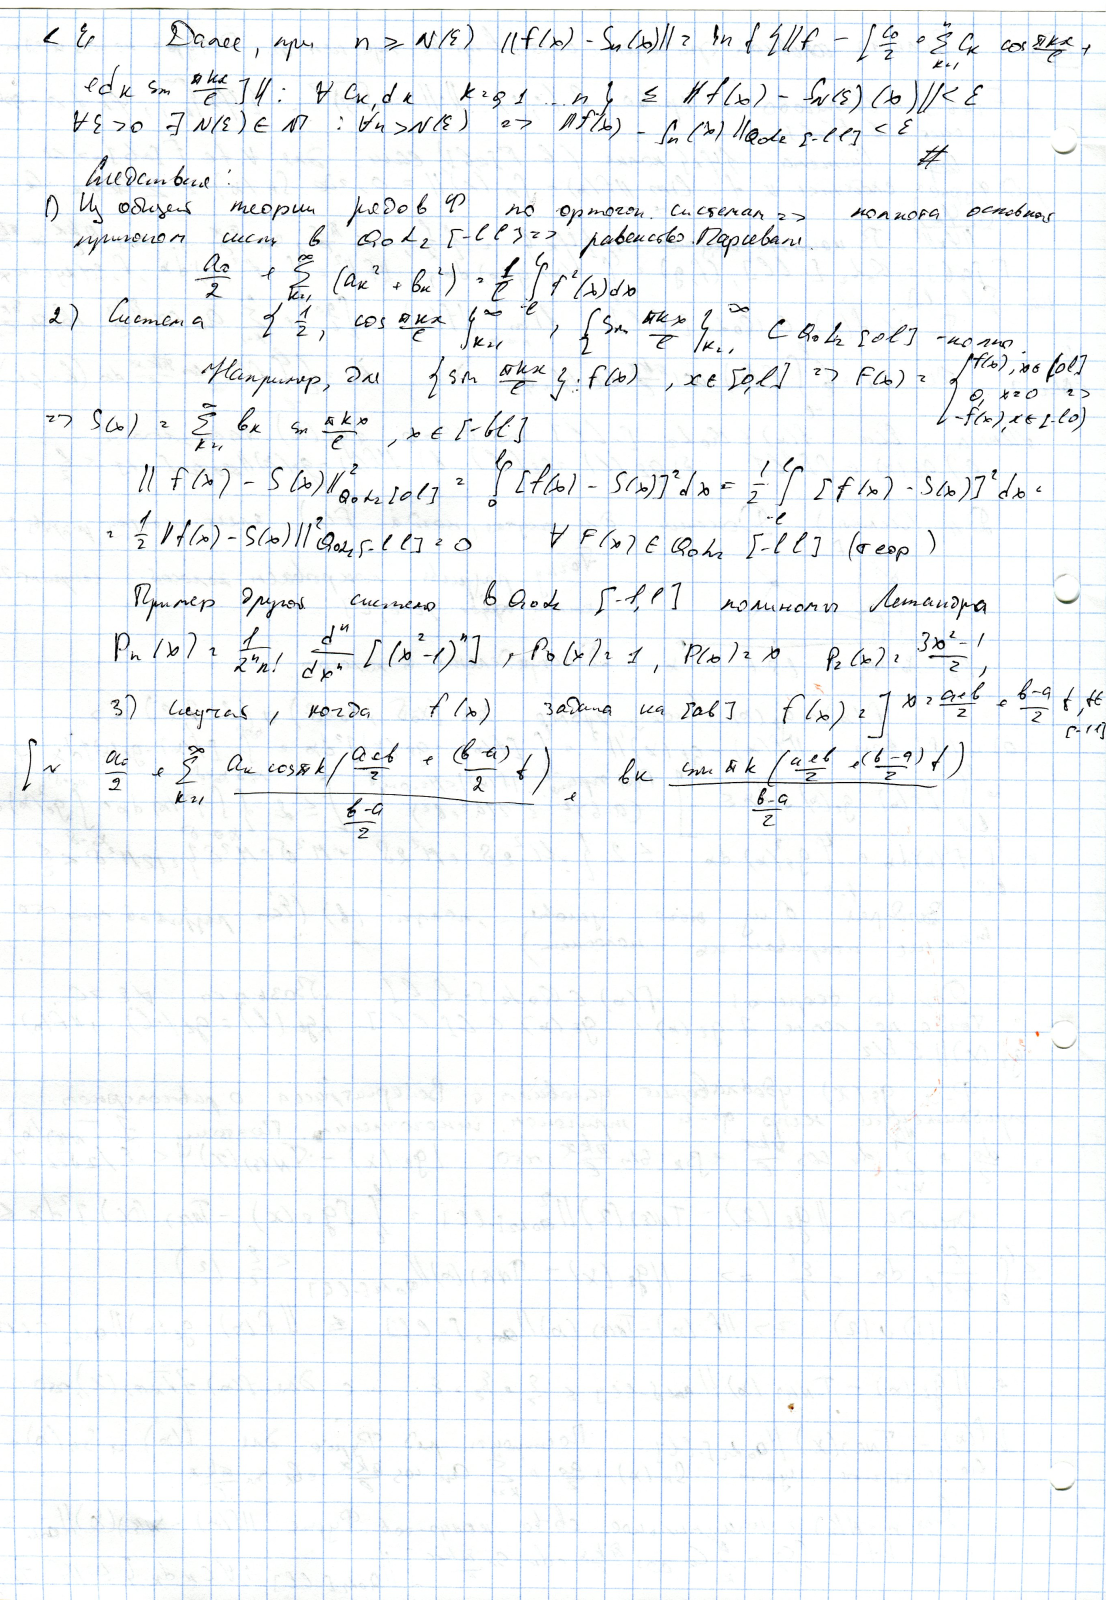 < ε, Далее, при n ≥ N(ε) ||f(x) - Sn(x)|| = inf { ||f - [c₀/2 + ∑ₖ₌₁ⁿ cₖ cos πkx/l +
+ dₖ sin πkx/l ] || : ∀ cₖ, dₖ k=0,1 ... n } ≤ ||f(x) - S_N(ε)(x)|| < ε
∀ε>0 ∃ N(ε) ∈ N : ∀n>N(ε) => ||f(x) - Sn(x)||Q₀L₂[-l l] < ε
#
Следствия:
1) Из общей теории рядов Ф по ортогон. системам => полнота основной
тригоном сист в Q₀L₂ [-l l] => равенство Парсеваля.
a₀²/2 + ∑ₖ₌₁^∞ (aₖ² + bₖ²) = 1/l ∫₋ₗˡ f²(x)dx
2) Система { 1/2, cos πkx/l }ₖ₌₁^∞, { sin πkx/l }ₖ₌₁^∞ ⊂ Q₀L₂ [0 l] - полны.
Например, для {sin πkx/l} : f(x), x ∈ [0, l] => F(x) = { f(x), x∈[0 l]
0, x=0 =>
-f(x), x∈[-l 0)
=> S(x) = ∑ₖ₌₁^∞ bₖ sin πkx/l, x ∈ [-l l]
|| f(x) - S(x)||²Q₀L₂[0 l] = ∫₀ˡ [f(x) - S(x)]² dx = 1/2 ∫₋ₗˡ [f(x) - S(x)]² dx =
= 1/2 ||f(x) - S(x)||²Q₀L₂[-l l] = 0 ∀ F(x) ∈ Q₀L₂ [-l l] (теор)
Пример другой системы в Q₀L₂ [-1, 1] полиномы Лежандра
Pₙ(x) = 1/2ⁿn! dⁿ/dxⁿ [(x²-1)ⁿ], P₀(x) = 1, P(x) = x P₂(x) = 3x²-1/2,
3) случая, когда f(x) задана на [a b] f(x) = ] x = a+b/2 + b-a/2 t, t∈
[-1 1]
f ~ a₀/2 + ∑ₖ₌₁^∞ aₖ cos πk (a+b/2 + (b-a)/2 t) / b-a/2 + bₖ sin πk (a+b/2 + (b-a)/2 t) / b-a/2